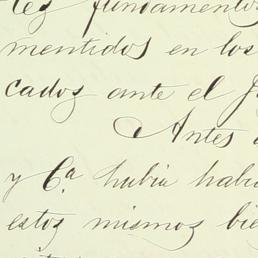 fundamentos
mentidos en los
cados ante el
Antes
y C.a hubia
estos mismos